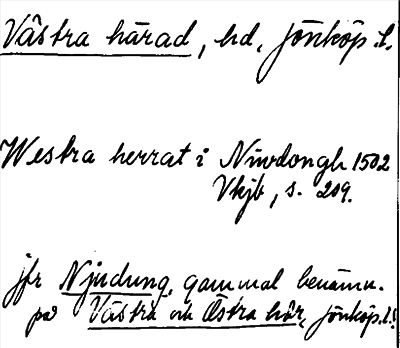 Västra härad, hd, Jönköp. l.
Westra herrat i Niwdongh 1502
Vkjb, s. 209.
jfr Njudung, gammal benämn.
på Västra och Östra här, Jönköp. l.!